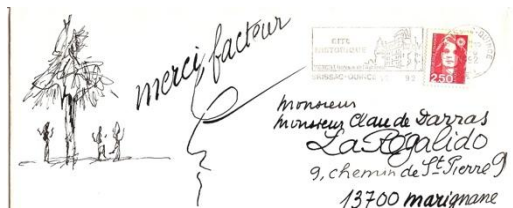 merci facteur
CITE
HISTORIQUE
2,50
Monsieur
Monsieur Claude Darras
La Rogalido
9, chemin de St Pierre 9
13700 marignane